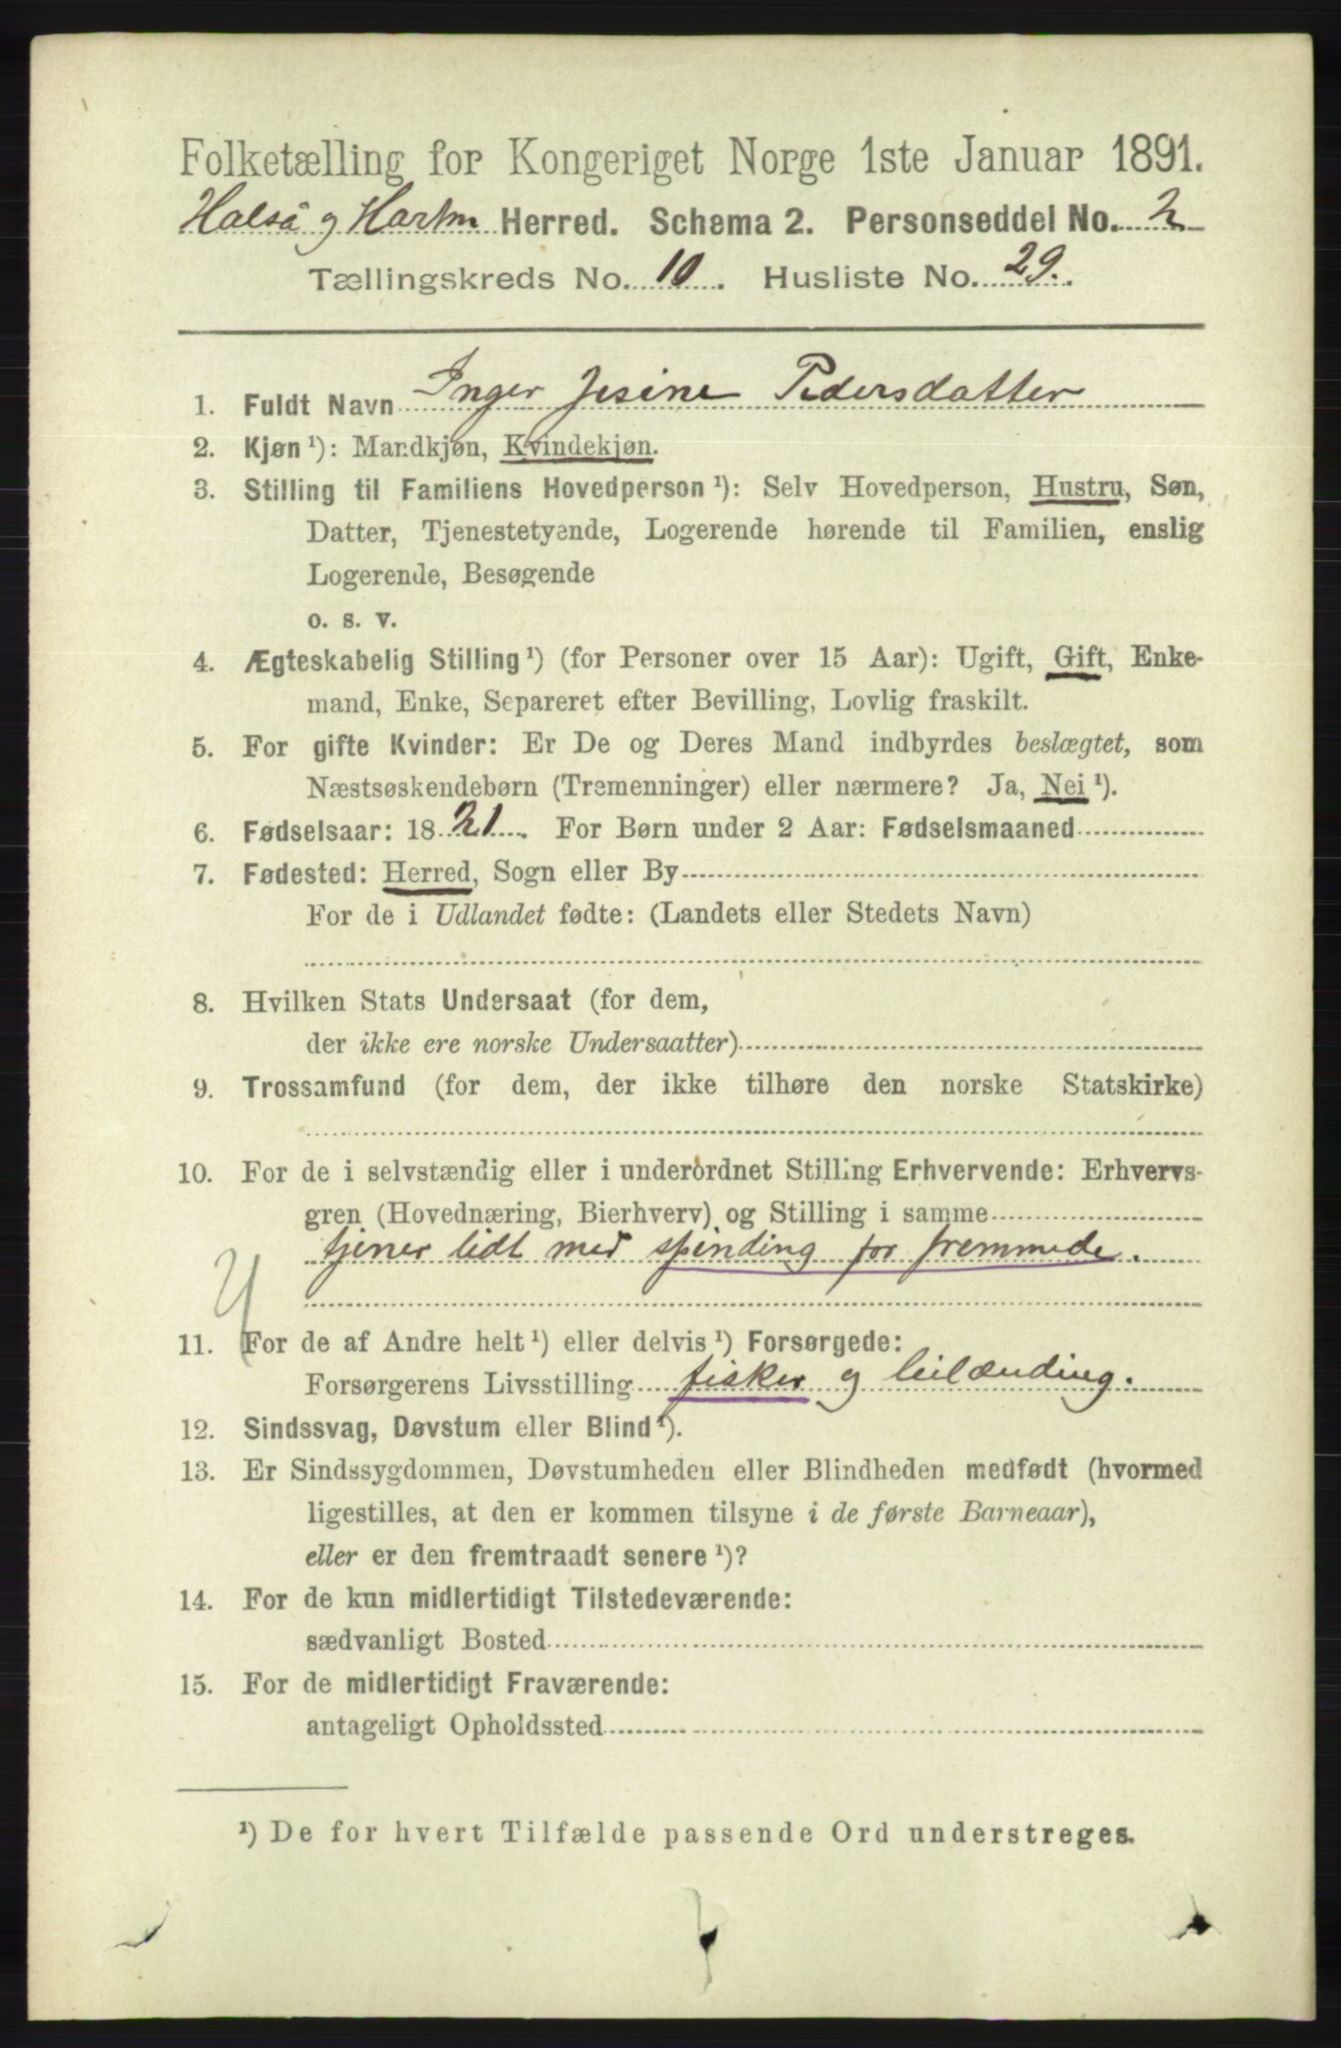 Folketælling for Kongeriget Norge 1ste Januar 1891.
Halså og Hartm Herred. Schema 2. Personseddel No. 2
Tællingskreds No. 10. Husliste No. 29.
1. Fuldt Navn Inger Jesine Pedersdatter
2. Kjøn ¹): Mandkjøn, Kvindekjøn.
3. Stilling til Familiens Hovedperson ¹): Selv Hovedperson, Hustru, Søn,
Datter, Tjenestetyende, Logerende hørende til Familien, enslig
Logerende, Besøgende
o. s. v.
4. Ægteskabelig Stilling ¹) (for Personer over 15 Aar): Ugift, Gift, Enke-
mand, Enke, Separeret efter Bevilling, Lovlig fraskilt.
5. For gifte Kvinder: Er De og Deres Mand indbyrdes beslægtet, som
Næstsøskendebørn (Tremenninger) eller nærmere? Ja, Nei ¹).
6. Fødselsaar: 1821. For Børn under 2 Aar: Fødselsmaaned
7. Fødested: Herred, Sogn eller By
For de i Udlandet fødte: (Landets eller Stedets Navn)
8. Hvilken Stats Undersaat (for dem,
der ikke ere norske Undersaatter)
9. Trossamfund (for dem, der ikke tilhøre den norske Statskirke)
10. For de i selvstændig eller i underordnet Stilling Erhvervende: Erhvervs-
gren (Hovednæring, Bierhverv) og Stilling i samme
tjener lidt med spinding for fremmede.
11. For de af Andre helt ¹) eller delvis ¹) Forsørgede:
Forsørgerens Livsstilling fisker og leilænding.
12. Sindssvag, Døvstum eller Blind ¹).
13. Er Sindssygdommen, Døvstumheden eller Blindheden medfødt (hvormed
ligestilles, at den er kommen tilsyne i de første Barneaar),
eller er den fremtraadt senere ¹)?
14. For de kun midlertidigt Tilstedeværende:
sædvanligt Bosted
15. For de midlertidigt Fraværende:
antageligt Opholdssted
¹) De for hvert Tilfælde passende Ord understreges.